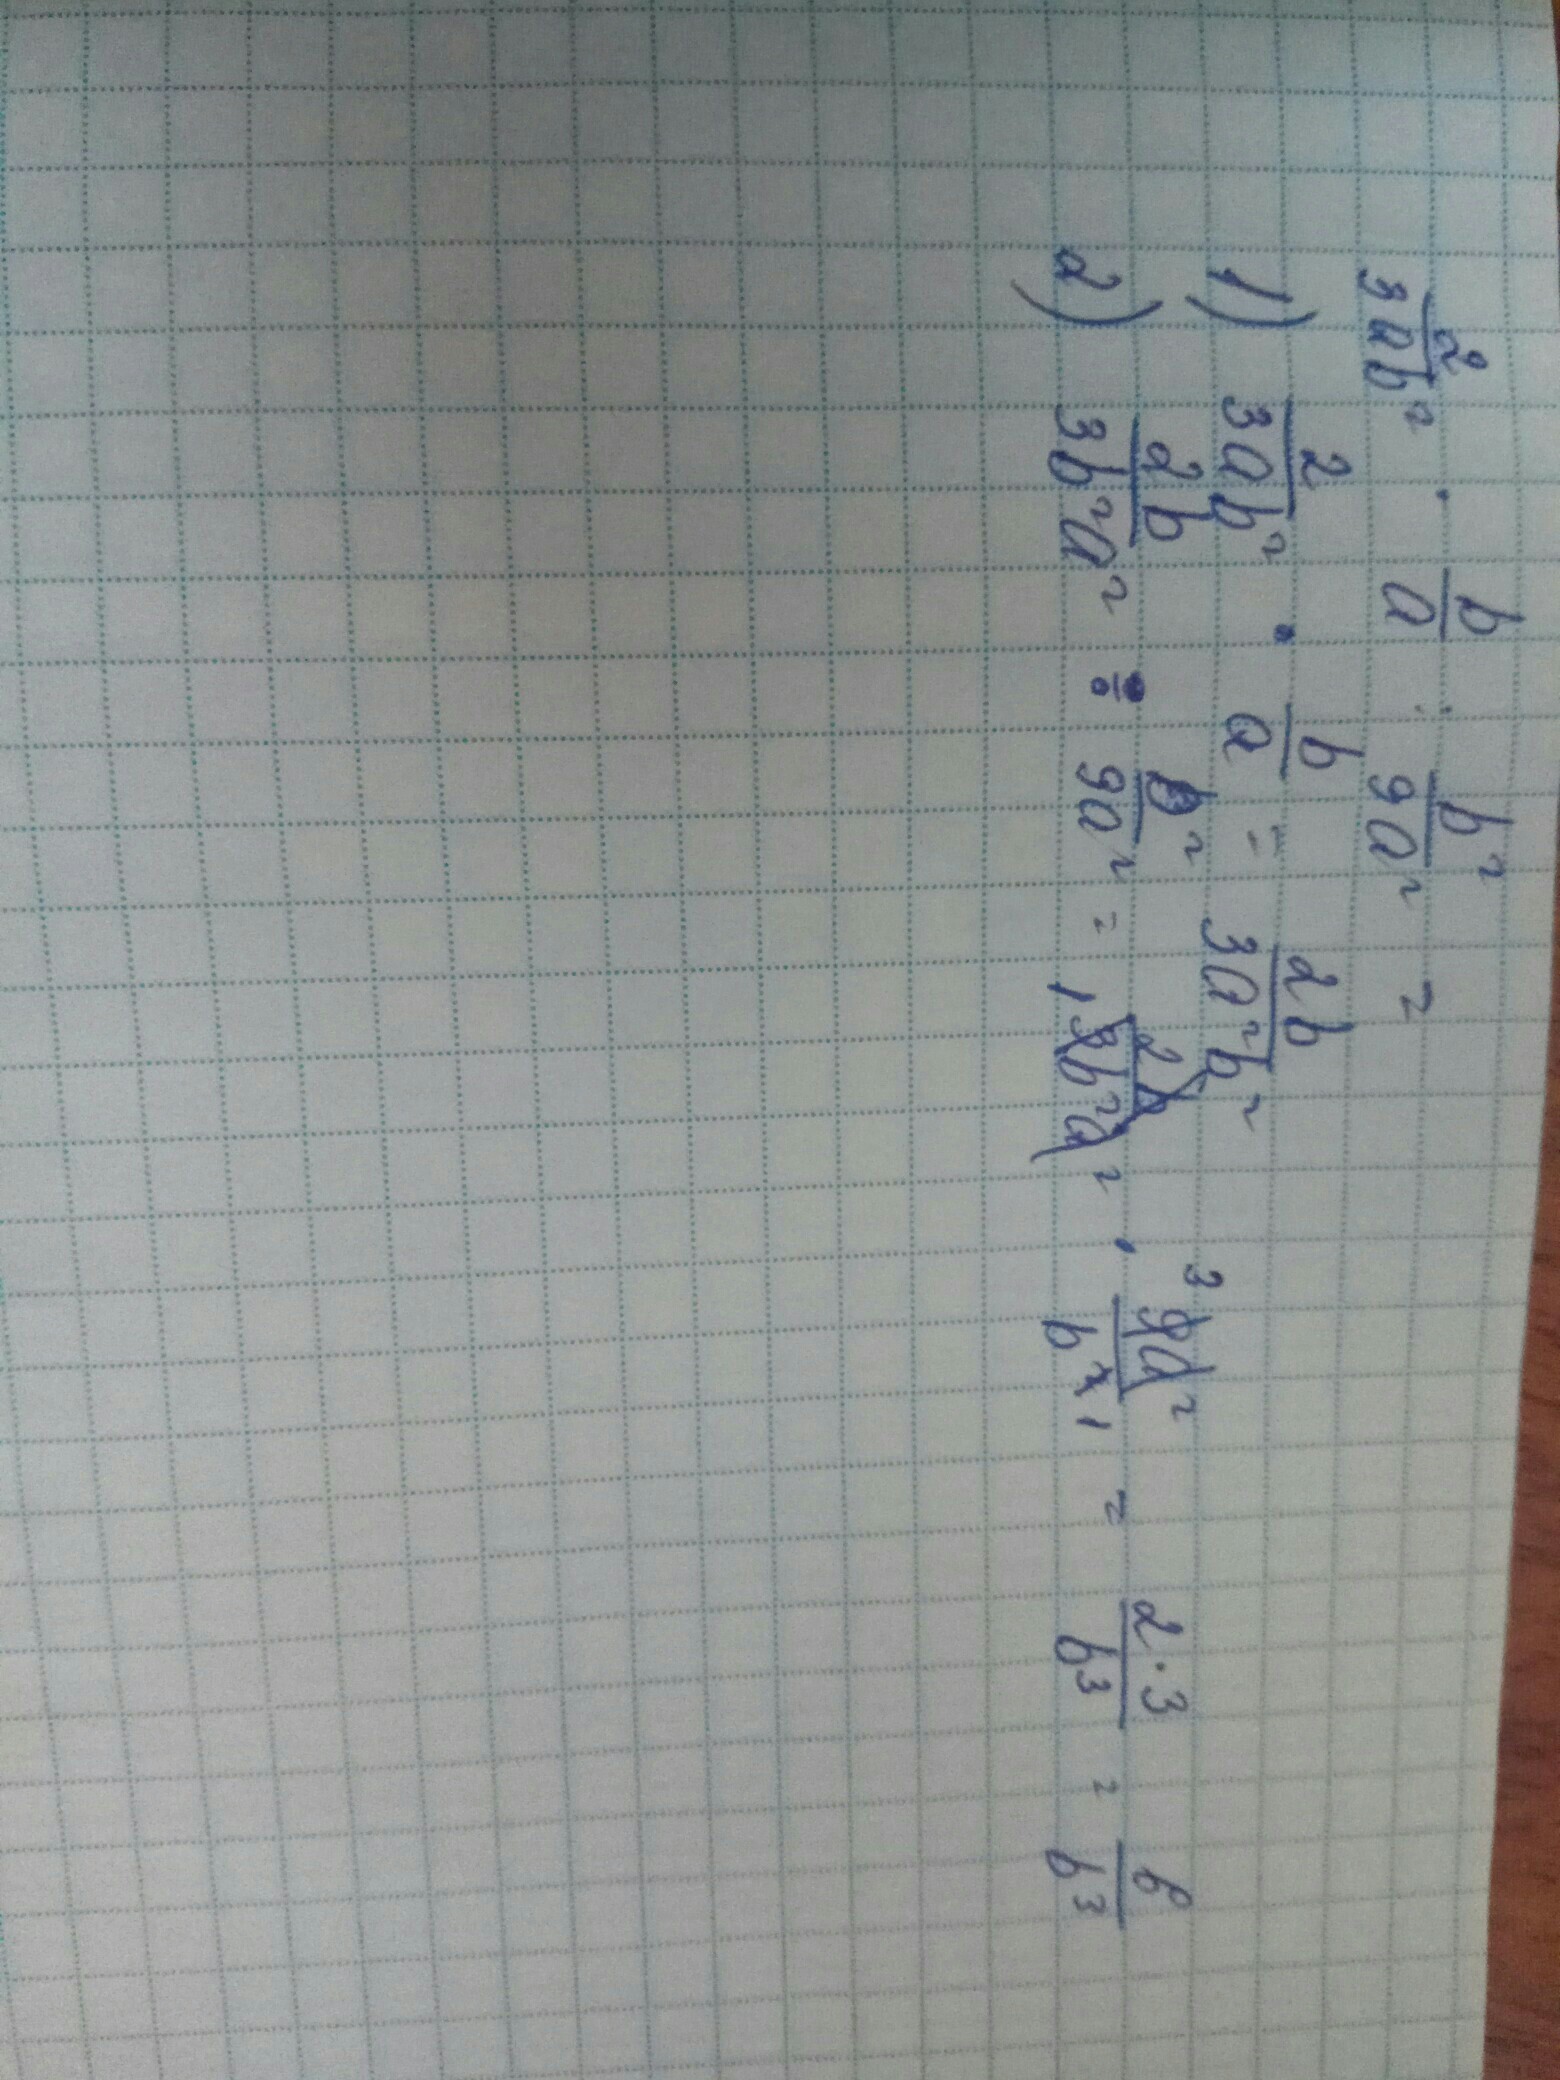 2/(3ab²) · b/a : b²/(9a²) =
1) 2/(3ab²) · b/a = 2b/(3a²b²)
2) 2b/(3b²a²) ÷ b²/(9a²) = 2b/(1 3b²a²) · (3 9a²)/(b² 1) = (2·3)/b³ = 6/b³